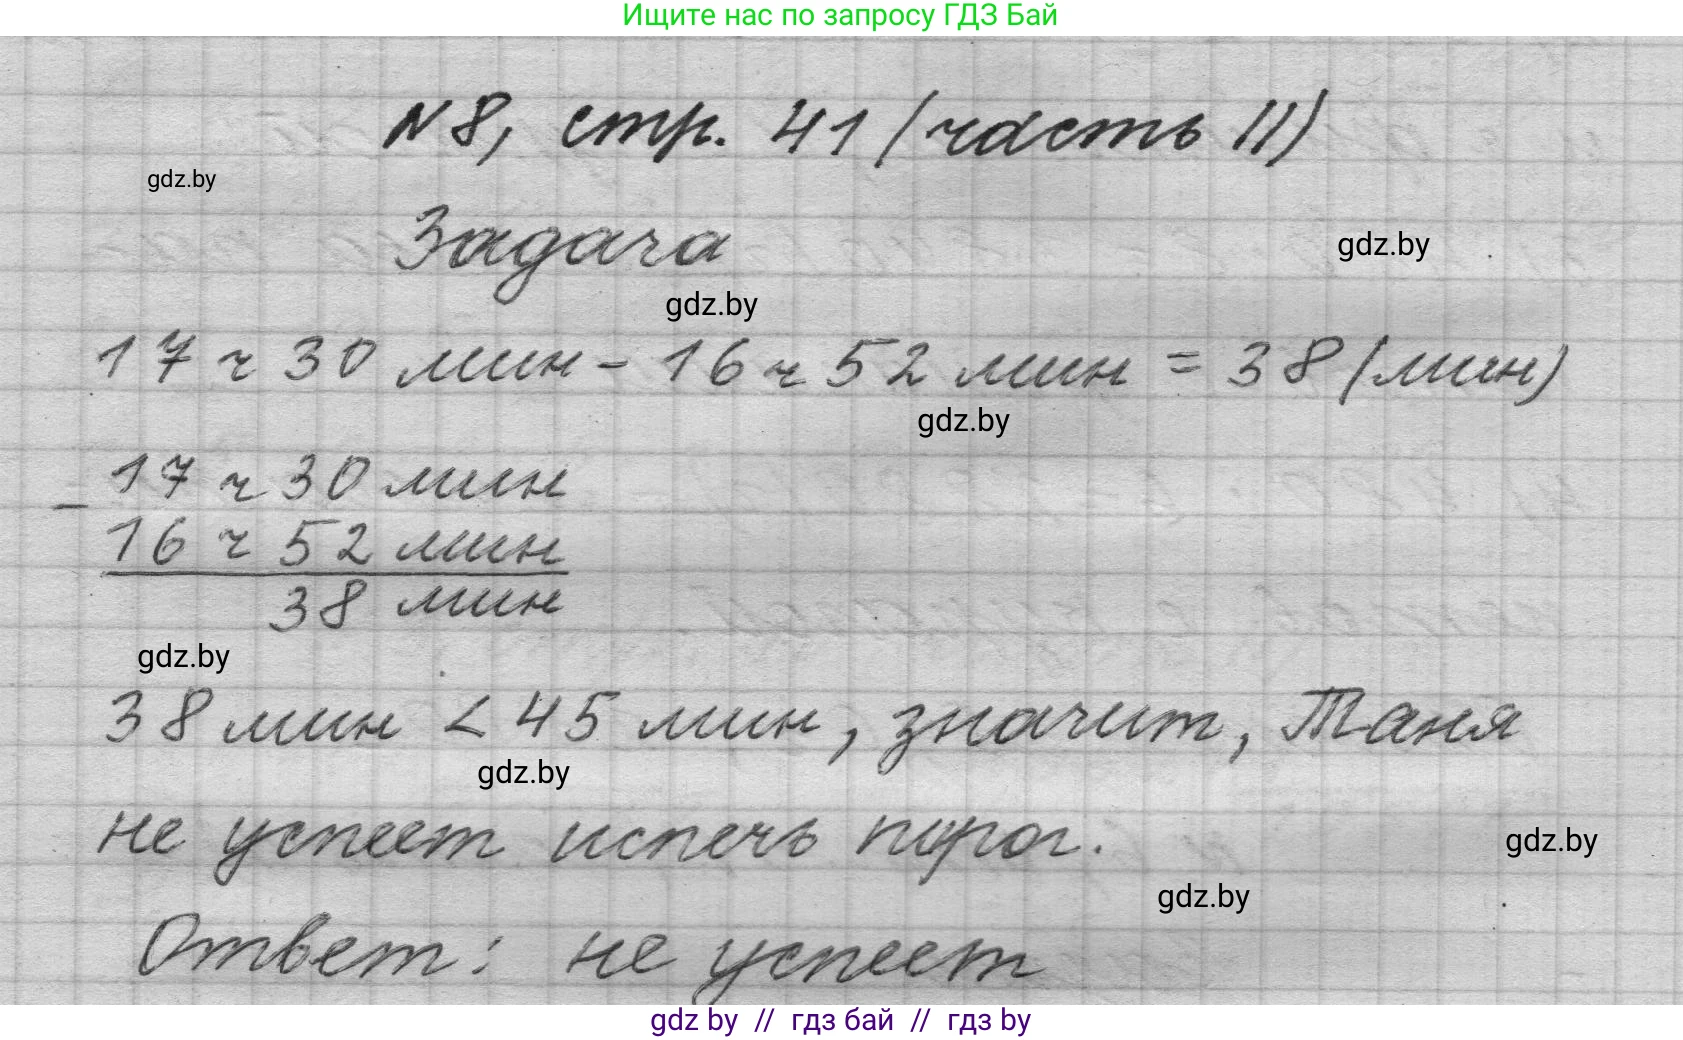 Ищите нас по запросу ГДЗ Бай
№8, стр. 41 (часть II)
gdz.by
Задача
gdz.by
gdz.by
17 ч 30 мин - 16 ч 52 мин = 38 (мин)
gdz.by
- 17 ч 30 мин
16 ч 52 мин
38 мин
gdz.by
38 мин < 45 мин, значит, Таня
gdz.by
не успеет испечь пирог.
gdz.by
gdz.by
Ответ: не успеет
gdz by // гдз бай // гдз by